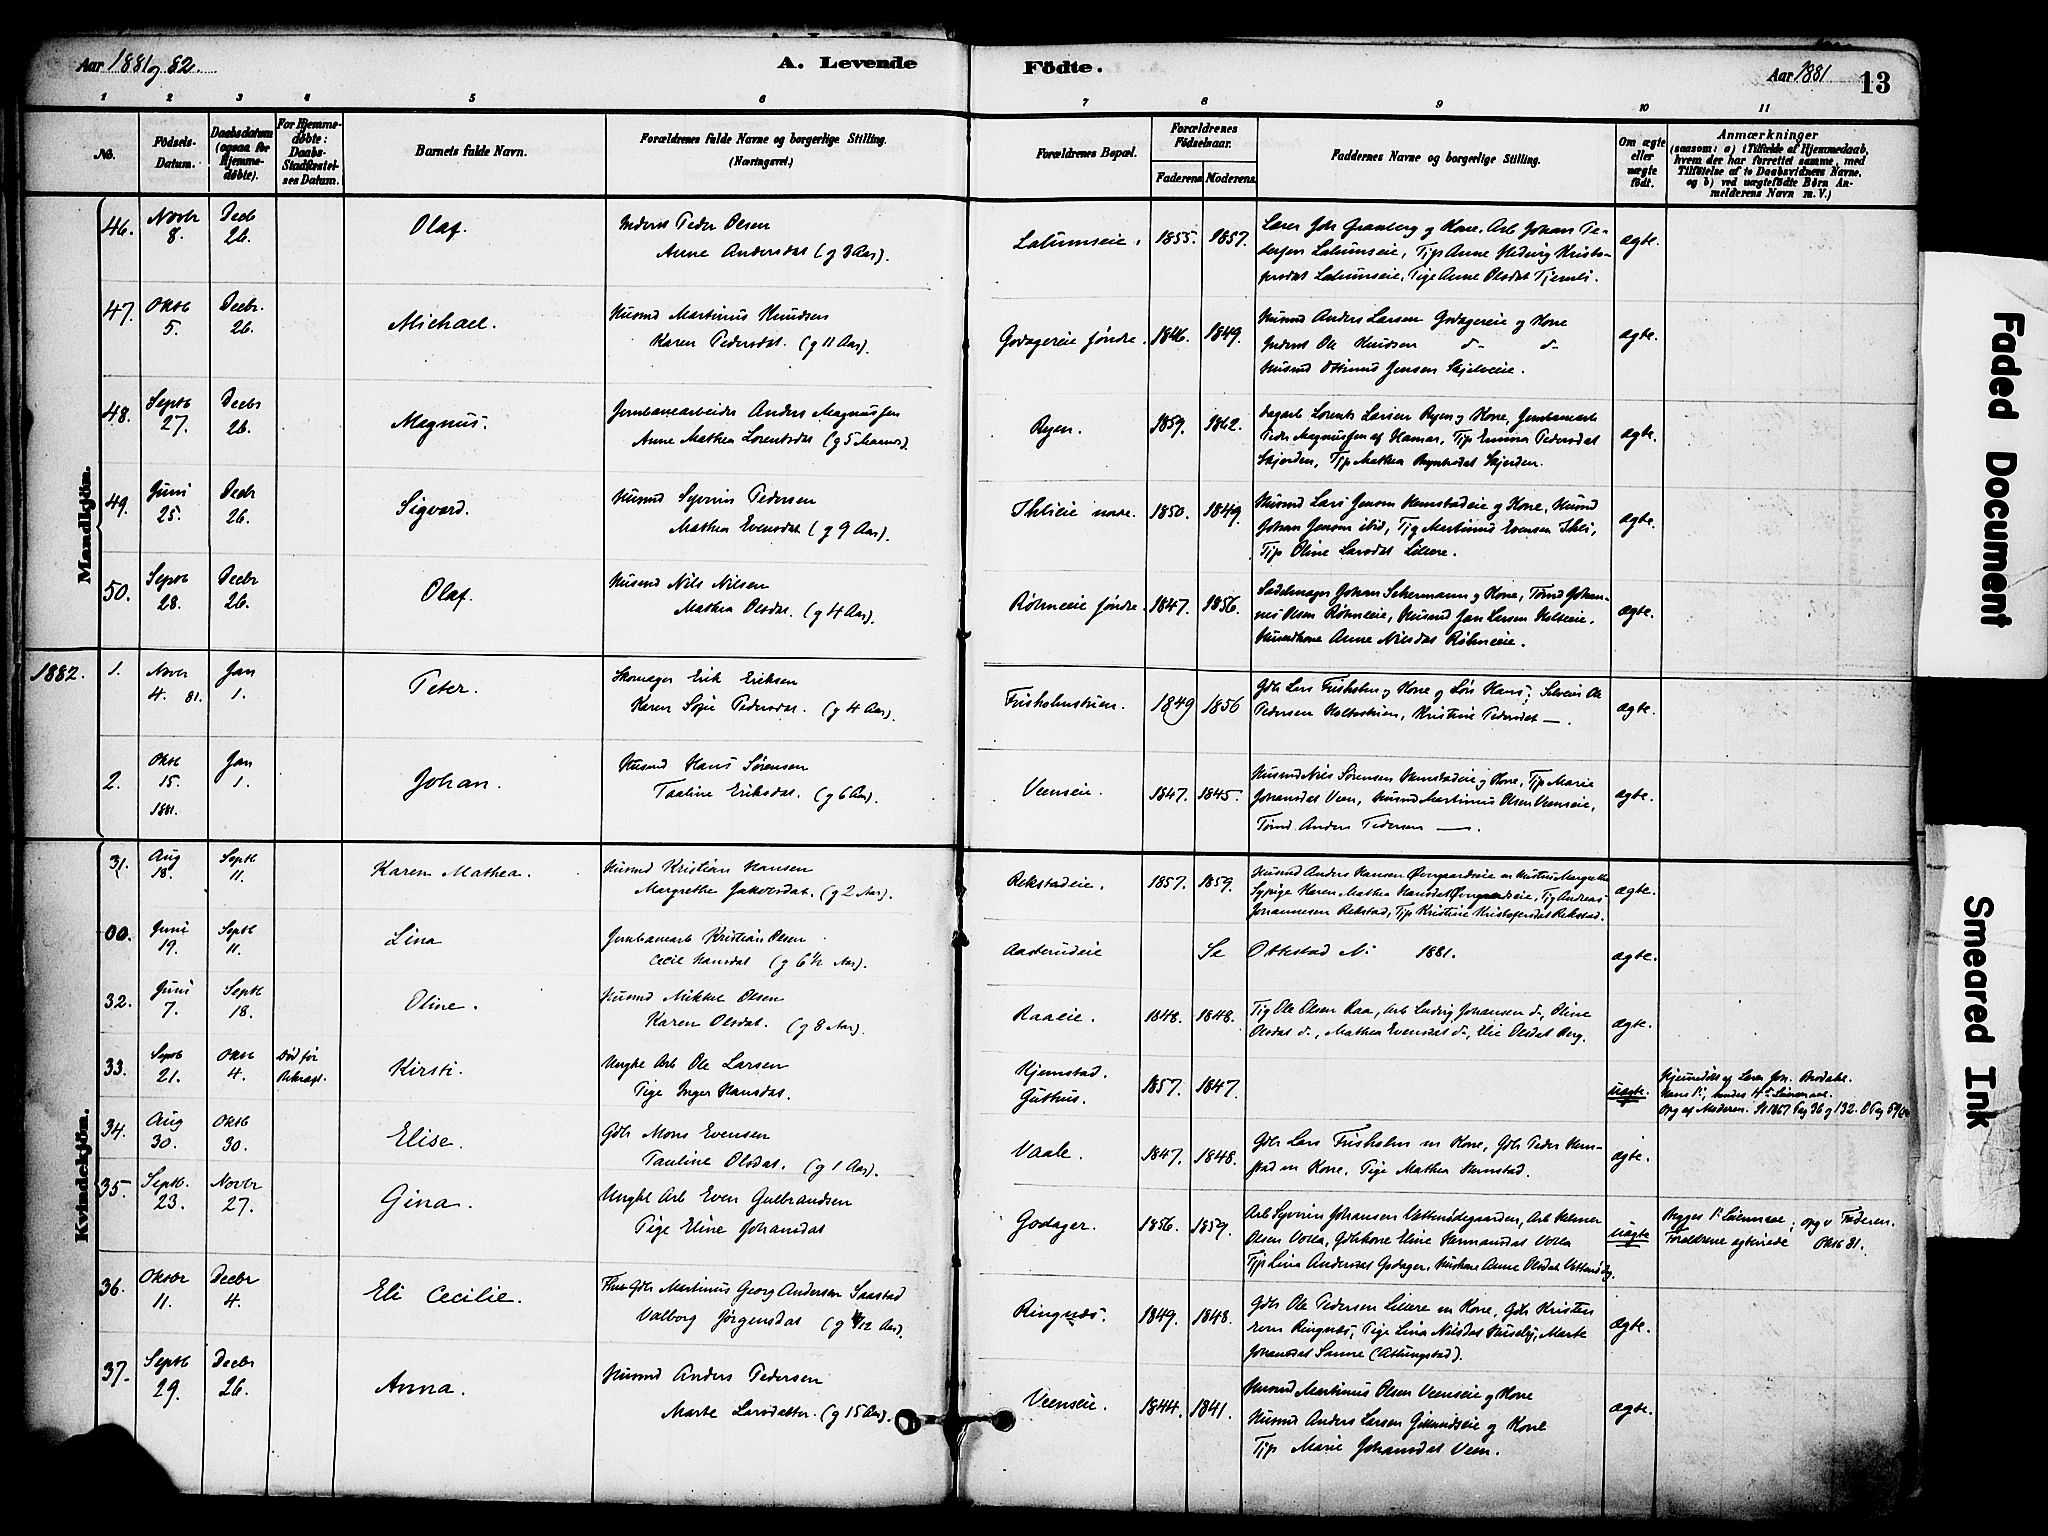 Aar 1881 og 82.
A. Levende Fødte.
Aar 1881
13
1 2 3 4 5 6 7 8 9 10 11
No.
Fødsels-Datum.
Daabsdatum (ogsaa for Hjemme-døbte).
For Hjemme-døbte: Daabs-Stadfæstel-ses Datum.
Barnets fulde Navn.
Forældrenes fulde Navne og borgerlige Stilling. (Næringsvei.)
Forældrenes Bopæl.
Forældrenes Fødselsaar.
Faderens Moderens.
Faddernes Navne og borgerlige Stilling.
Om ægte eller uægte født.
Anmærkninger
(saasom: a) i Tilfælde af Hjemmedaab, hvem der har forrettet samme, med Tilføielse af to Daabsvidners Navne. og b) ved uægtefødte Børn An-melderens Navn m. V.)
Mandkjøn.
46. Novbr 8. Decb 26. Olaf.
Inderst Peder Olsen
Anne Andersdat (g 3 Aar).
Lalumseie. 1855. 1857.
Lærer Joh Granberg og Kone, Arb Johan Pe-
dersen Lalumseie, Tjp Anne Hedvig Kristo-
persdat Lalumseie, Pige Anne Olsdat Tjernli.
ægte.
47. Oktb 5. Decbr. 26. Michael.
Husmd Martinus Knudsen
Karen Pedersdat. (g 11 Aar).
Godagereie søndre. 1846. 1849.
Husmd Anders Larsen Godagereie og Kone
Inderst Ole Knudsen d- d-
Husmd Ottinius Jensen Skjelveie.
ægte.
48. Septb 27. Decbr 26. Magnus.
Jernbanearbeider Anders Magnussen
Anne Mathea Lorentsdat (g 5 Maaned).
Ryen. 1859. 1862.
Dagarb Lorents Larsen Ryen og Kone, Jernbanearb
Peder Magnussen af Hamar, Tjp Emma Pedersdat
Skjerden, Tjp Mathea Skjerden.
ægte.
49. Juni 25. Decbr 26. Sigvard.
Husmd Syverin Pedersen
Mathea Evensdat (g 9 Aar).
Ihlieie nore. 1850. 1849.
Husmd Lars Jensen Hemstadeie og Kone, Husmd
Johan Jensen ibid, Tjg Martinus Evensen Ihli,
Tjp Oline Larsdat Lillere.
ægte.
50. Septb 28. Decbr 26. Olaf.
Husmd Nils Nilsen
Mathea Olsdat. (g 4 Aar).
Røhneeie søndre. 1847. 1856.
Sadelmager Johan Schermann og Kone, Tømd Johan-
nes Olsen Røhneeie, Husmd Jan Larsen Holteeie,
Husmdkone Anne Nilsdat Røhneeie.
ægte.
1882. 1. Novbr 4. 81. Jan 1. Peter.
Skomager Erik Eriksen
Karen Sofie Pedersdat. (g 4 Aar).
Frisholmstuen. 1849 1856
Gdb Lars Frisholm og Kone og Søn Hans; Selveier Ole
Pedersen Holtestuen, Kristine Pedersdat —.
ægte.
2. Oktb 15. 1881. Jan 1. Johan.
Husmd Hans Sørensen
Pauline Eriksdat. (g 6 Aar).
Veenseie. 1847. 1845.
Husmd Nils Sørensen Hemstadeie og Kone, Tjp Marie
Johansdat Veen, Husmd Martinus Olsen Veenseie,
Tømd. Anders Pedersen —.
ægte.
Kvindekjøn.
31. Aug 18. Septb 11. Karen Mathea.
Husmd Kristian Hansen
Margrethe Jakobsdat. (g 2 Aar).
Rekstadeie. 1857. 1859.
Husmd Anders Hansen Overgaardseie m Hustru Margrethe
Sypige Karen Mathea Hansdat Overgaardseie, Tjg Andreas
Johannesen Rekstad, Tjp Kristine Kristofersdat Rekstad.
ægte.
00. Juni 19. Septb 11. Lina
Jernbanearb Kristian Olsen.
Cecil Hansdat (g 6 1/2 Aar).
Aasterudeie Se Ottestad No 1881.
ægte.
32. Juni 7. Septb 18. Oline.
Husmd Mikkel Olsen
Karen Olsdat. (g 8 Aar).
Raaeie. 1848. 1848.
Tjg Ole Olsen Raa, Arb Ludvig Johansen d., Oline
Olsdat d., Mathea Evensdat d., Elie Olsdat Berg.
ægte.
33. Septb 21. Oktb 4. Død før Bekræft. Kirsti.
Ungkl Arb Ole Larsen
Pige Inger Hansdat.
Hjemstad. Guthus. 1857. 1847.
uægte.
Hjemmedøbt af Lærer Joh. Brodahl.
Hans 1ste, hendes 4de Leiermaal.
Opg af Moderen.
34. Aug 30. Oktb 30. Elise.
Gdb Mons Evensen
Pauline Olsdat. (g 1 Aar).
Vaale. 1847. 1848.
Gdb Lars Frisholm m Kone, Gdb Peder Hem-
stad m Kone, Pige Mathea Hemstad.
ægte.
35. Septb. 23. Novbr 27. Gina.
Ungkl Arb Even Gulbrandsen
Pige Eline Johansdat
Godager. 1856. 1859.
Arb Syverin Johansen Vettenødegaarden, Arb Helmer
Olsen Volla, Gdbkone Eline Hermansdat Volla
Tjp Lina Andersdat Godager, Huskone Anne Olsdat
uægte
Begges 1ste Leiermaal; opg v Faderen.
Forældrene ægteviede Oktb 81.
36. Oktbr 11. Decbr 4. Eli Cecilie.
Gdb Martinus Georg Andersen Saastad
Valborg Jørgensdat (g 1/12 Aar).
Ringnæs. 1849. 1848.
Gdb Ole Pedersen Lillere m Kone, Gdb Kristen
Ringnæs, Pige Lina Nilsdat Huseby, Marte
Johansdat Sanne (Atlungstad).
ægte.
37. Septb 29. Decbr 26. Anna.
Husmd Anders Pedersen
Marte Larsdatter. (g 15 Aar).
Veenseie. 1844. 1841.
Husmd Martinus Olsen Veenseie og Kone
Husmd Anders Larsen Gillundseie og Kone
Tjp Marie Johansdat Veen.
ægte.
Faded Document
Smeared Ink